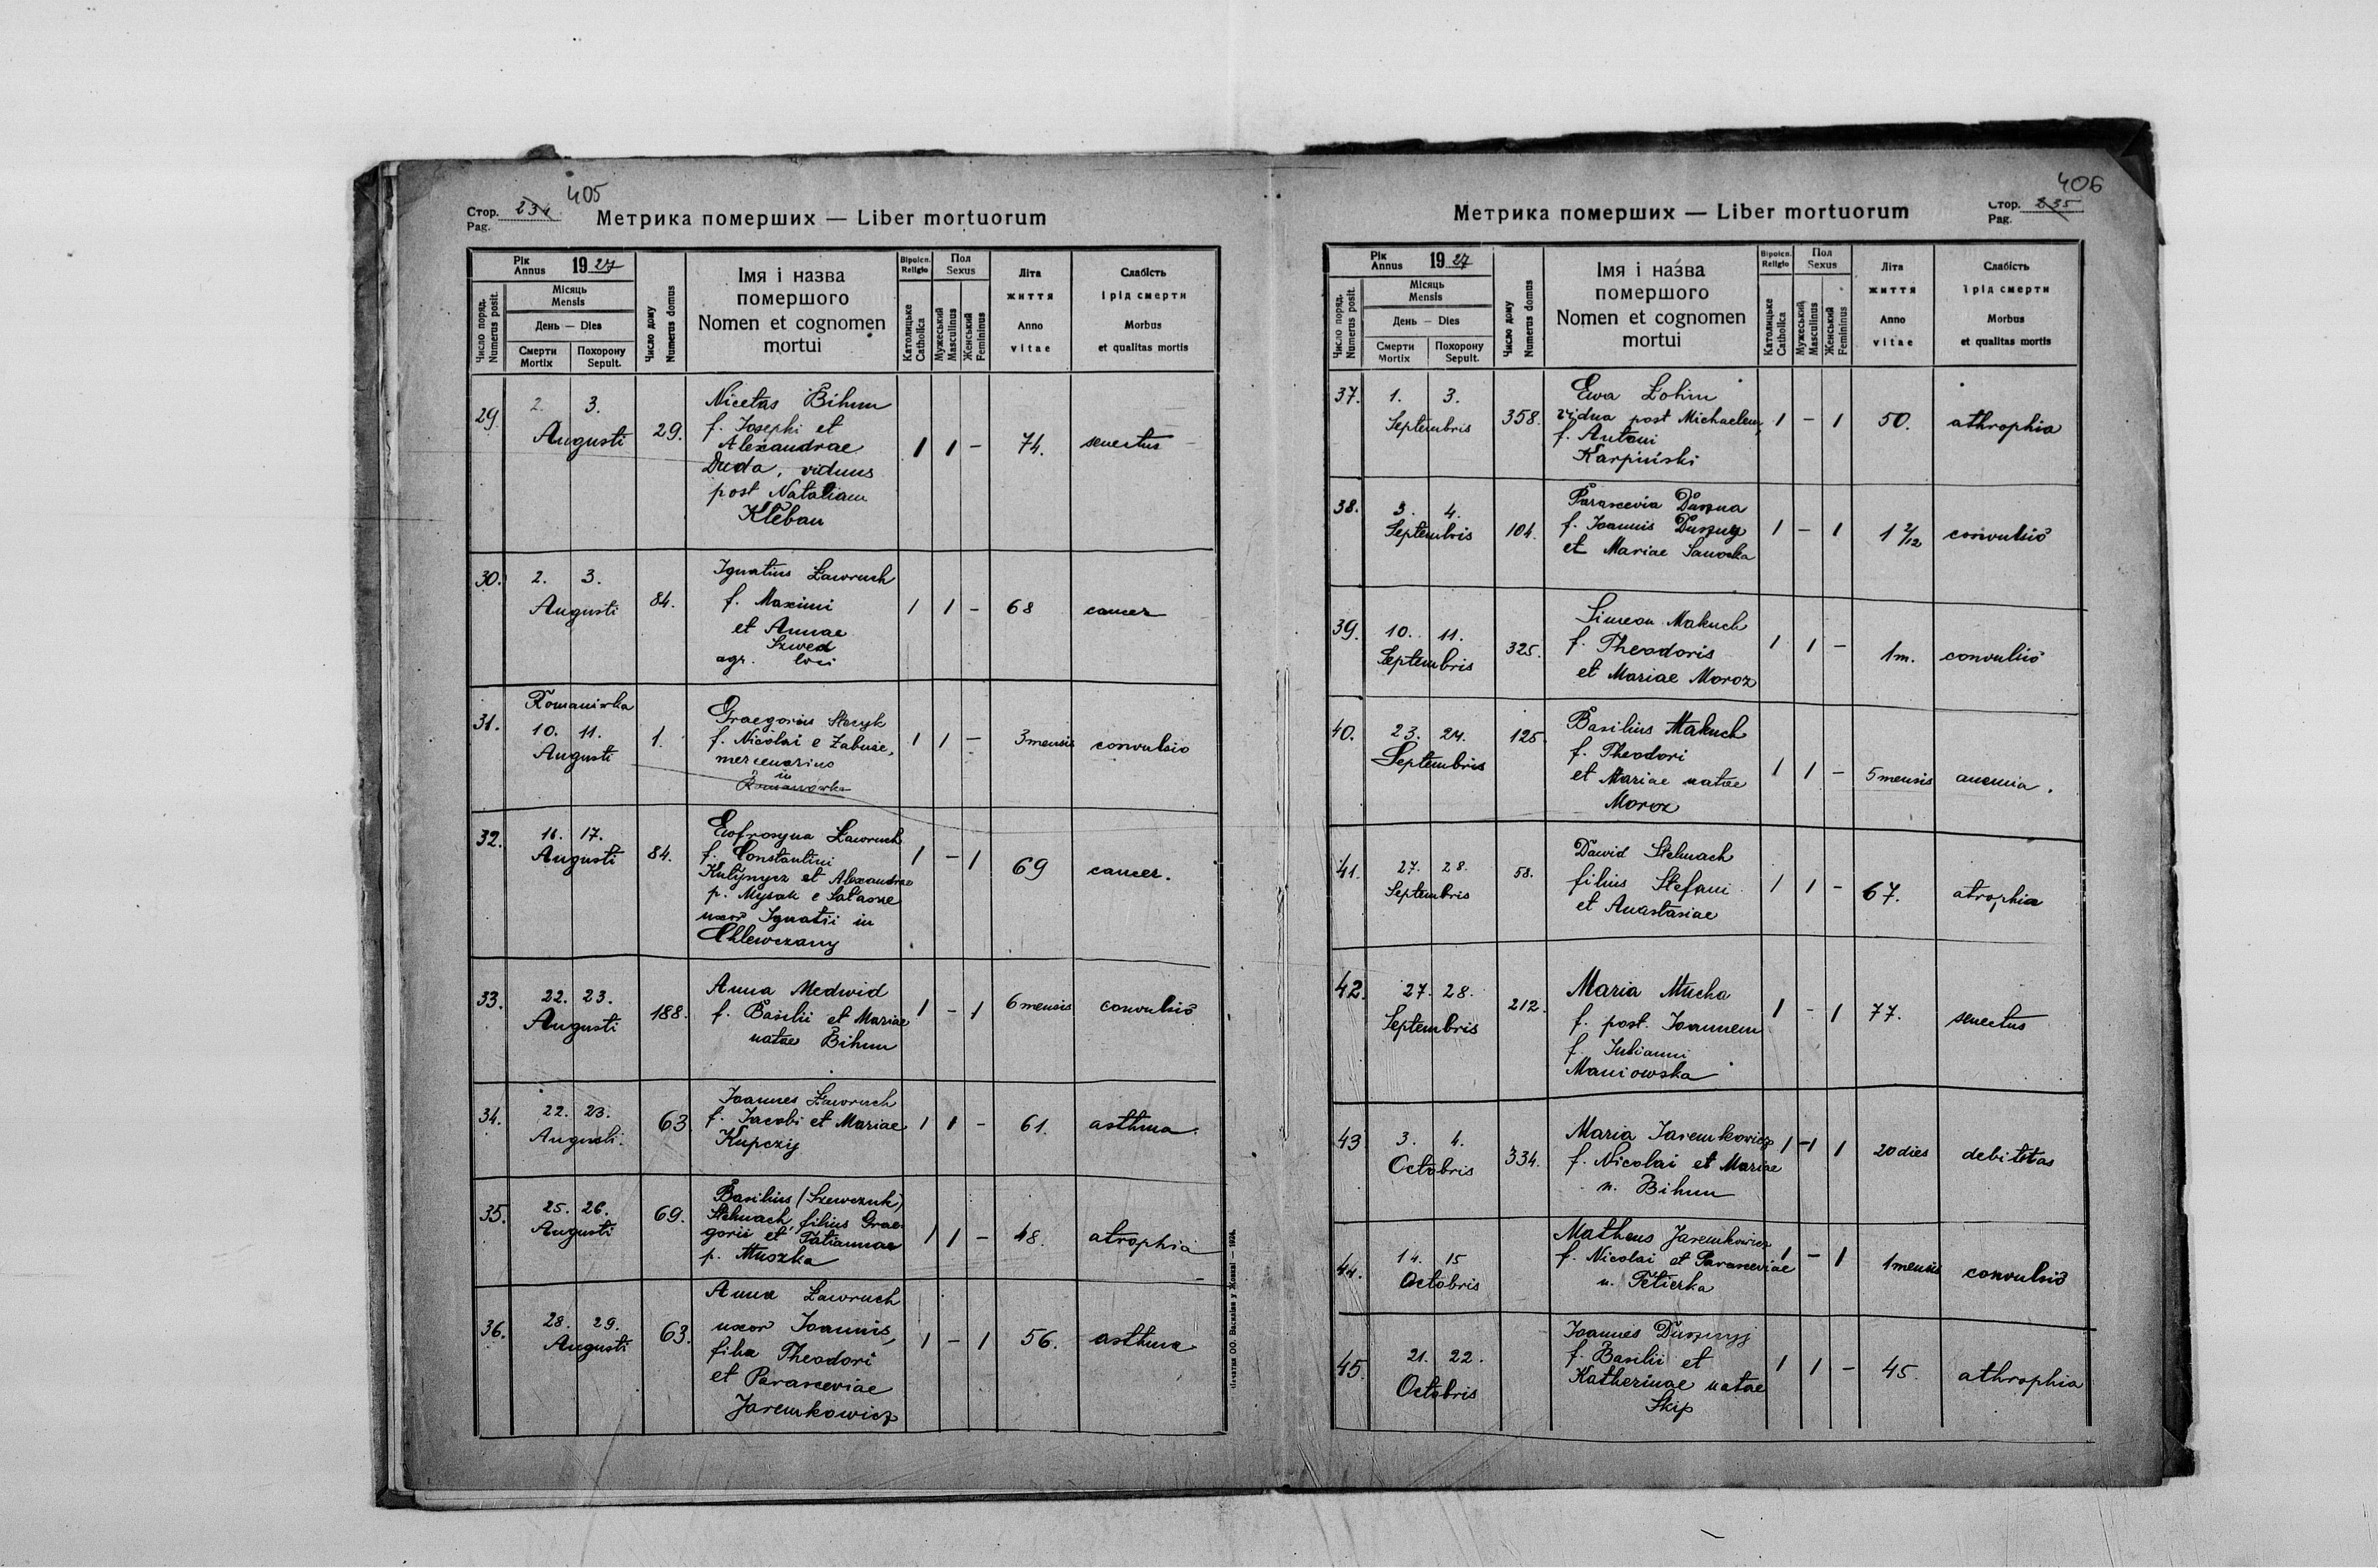 405
Стор. 234
Pag.
Метрика померших — Liber mortuorum
Рік
Annus 1927
Місяць
Mensis
День — Dies
Смерти
Mortix
Похорону
Sepult.
Число поряд.
Numerus posit.
Число дому
Numerus domus
Імя і назва
помершого
Nomen et cognomen
mortui
Віроісп.
Religio
Католицьке
Catholica
Пол
Sexus
Мужеський
Masculinus
Женський
Femininus
Літа
життя
Anno
vitae
Слабість
і рід смерти
Morbus
et qualitas mortis
29. 2. 3. Augusti 29.
Nicetas Bihun
f. Josephi et
Alexandrae
Duda, viduus
post Nataliam
Kleban
1 1 - 74. senectus
30. 2. 3. Augusti 84.
Ignatius Ławruch
f. Maximi
et Annae
Szwed
agr. loci
1 1 - 68 cancer
Romaniwka
31. 10. 11. Augusti 1.
Graegorius Stecyk
f. Nicolai e Zabuże,
mercenarius
in
Romanówka
1 1 - 3 mensis convulsio
32. 16. 17. Augusti 84.
Eufrosyna Ławruch
f. Constantini
Kulynycz et Alexandrae
p. Mysak e Sałasze
uxor Ignatii in
Chlewczany
1 - 1 69 cancer.
33. 22. 23. Augusti 188.
Anna Medwid
f. Basilii et Mariae
natae Bihun
1 - 1 6 mensis convulsio
34. 22. 23. Augusti. 63
Joannes Ławruch
f. Jacobi et Mariae
Kupczij
1 1 - 61. asthma.
35. 25. 26. Augusti 69.
Basilius (Szewczuk)
Stelmach, filius Grae-
gorii et Tatiannae
p. Muszka
1 1 - 48. atrophia
36. 28. 29. Augusti 63.
Anna Ławruch
uxor Joannis,
filia Theodori
et Parasceviae
Jaremkowicz
1 - 1 56. asthma
Печатня ОО. Василіян у Жовкві — 1924.
406
Метрика померших — Liber mortuorum
Стор. 235
Pag.
Рік
Annus 1927
Місяць
Mensis
День — Dies
Смерти
Mortix
Похорону
Sepult.
Число поряд.
Numerus posit.
Число дому
Numerus domus
Імя і назва
помершого
Nomen et cognomen
mortui
Віроісп.
Religio
Католицьке
Catholica
Пол
Sexus
Мужеський
Masculinus
Женський
Femininus
Літа
життя
Anno
vitae
Слабість
і рід смерти
Morbus
et qualitas mortis
37. 1. 3. Septembris 358.
Ewa Łohin
vidua post Michaelem,
f. Antoni
Karpiński
1 - 1 50. athrophia
38. 3. 4. Septembris 104.
Parascevia Duszna
f. Joannis Duszny
et Mariae Sanocka
1 - 1 1 2/12 convulsio
39. 10. 11. Septembris 325.
Simeon Makuch
f. Theodoris
et Mariae Moroz
1 1 - 1 m. convulsio
40. 23. 24. Septembris 125.
Basilius Makuch
f. Theodori
et Mariae natae
Moroz
1 1 - 5 mensis anemia.
41. 27. 28. Septembris 58.
Dawid Stelmach
filius Stefani
et Anastasiae
1 1 - 67. atrophia
42. 27. 28. Septembris 212.
Maria Mucha
f. post. Joannem
f. Julianni
Maniowska
1 - 1 77. senectus
43 3. 4. Octobris 334.
Maria Jaremkowicz
f. Nicolai et Mariae
n. Bihun
1 - 1 1 20 dies debititas
44. 14. 15 Octobris
Matheus Jaremkowicz
f. Nicolai et Parasceviae
n. Peticka
1 - 1 1 mensis convulsio
45. 21. 22. Octobris
Joannes Dusznyj
f. Basilii et
Katherinae natae
Skip
1 1 - 45. athrophia